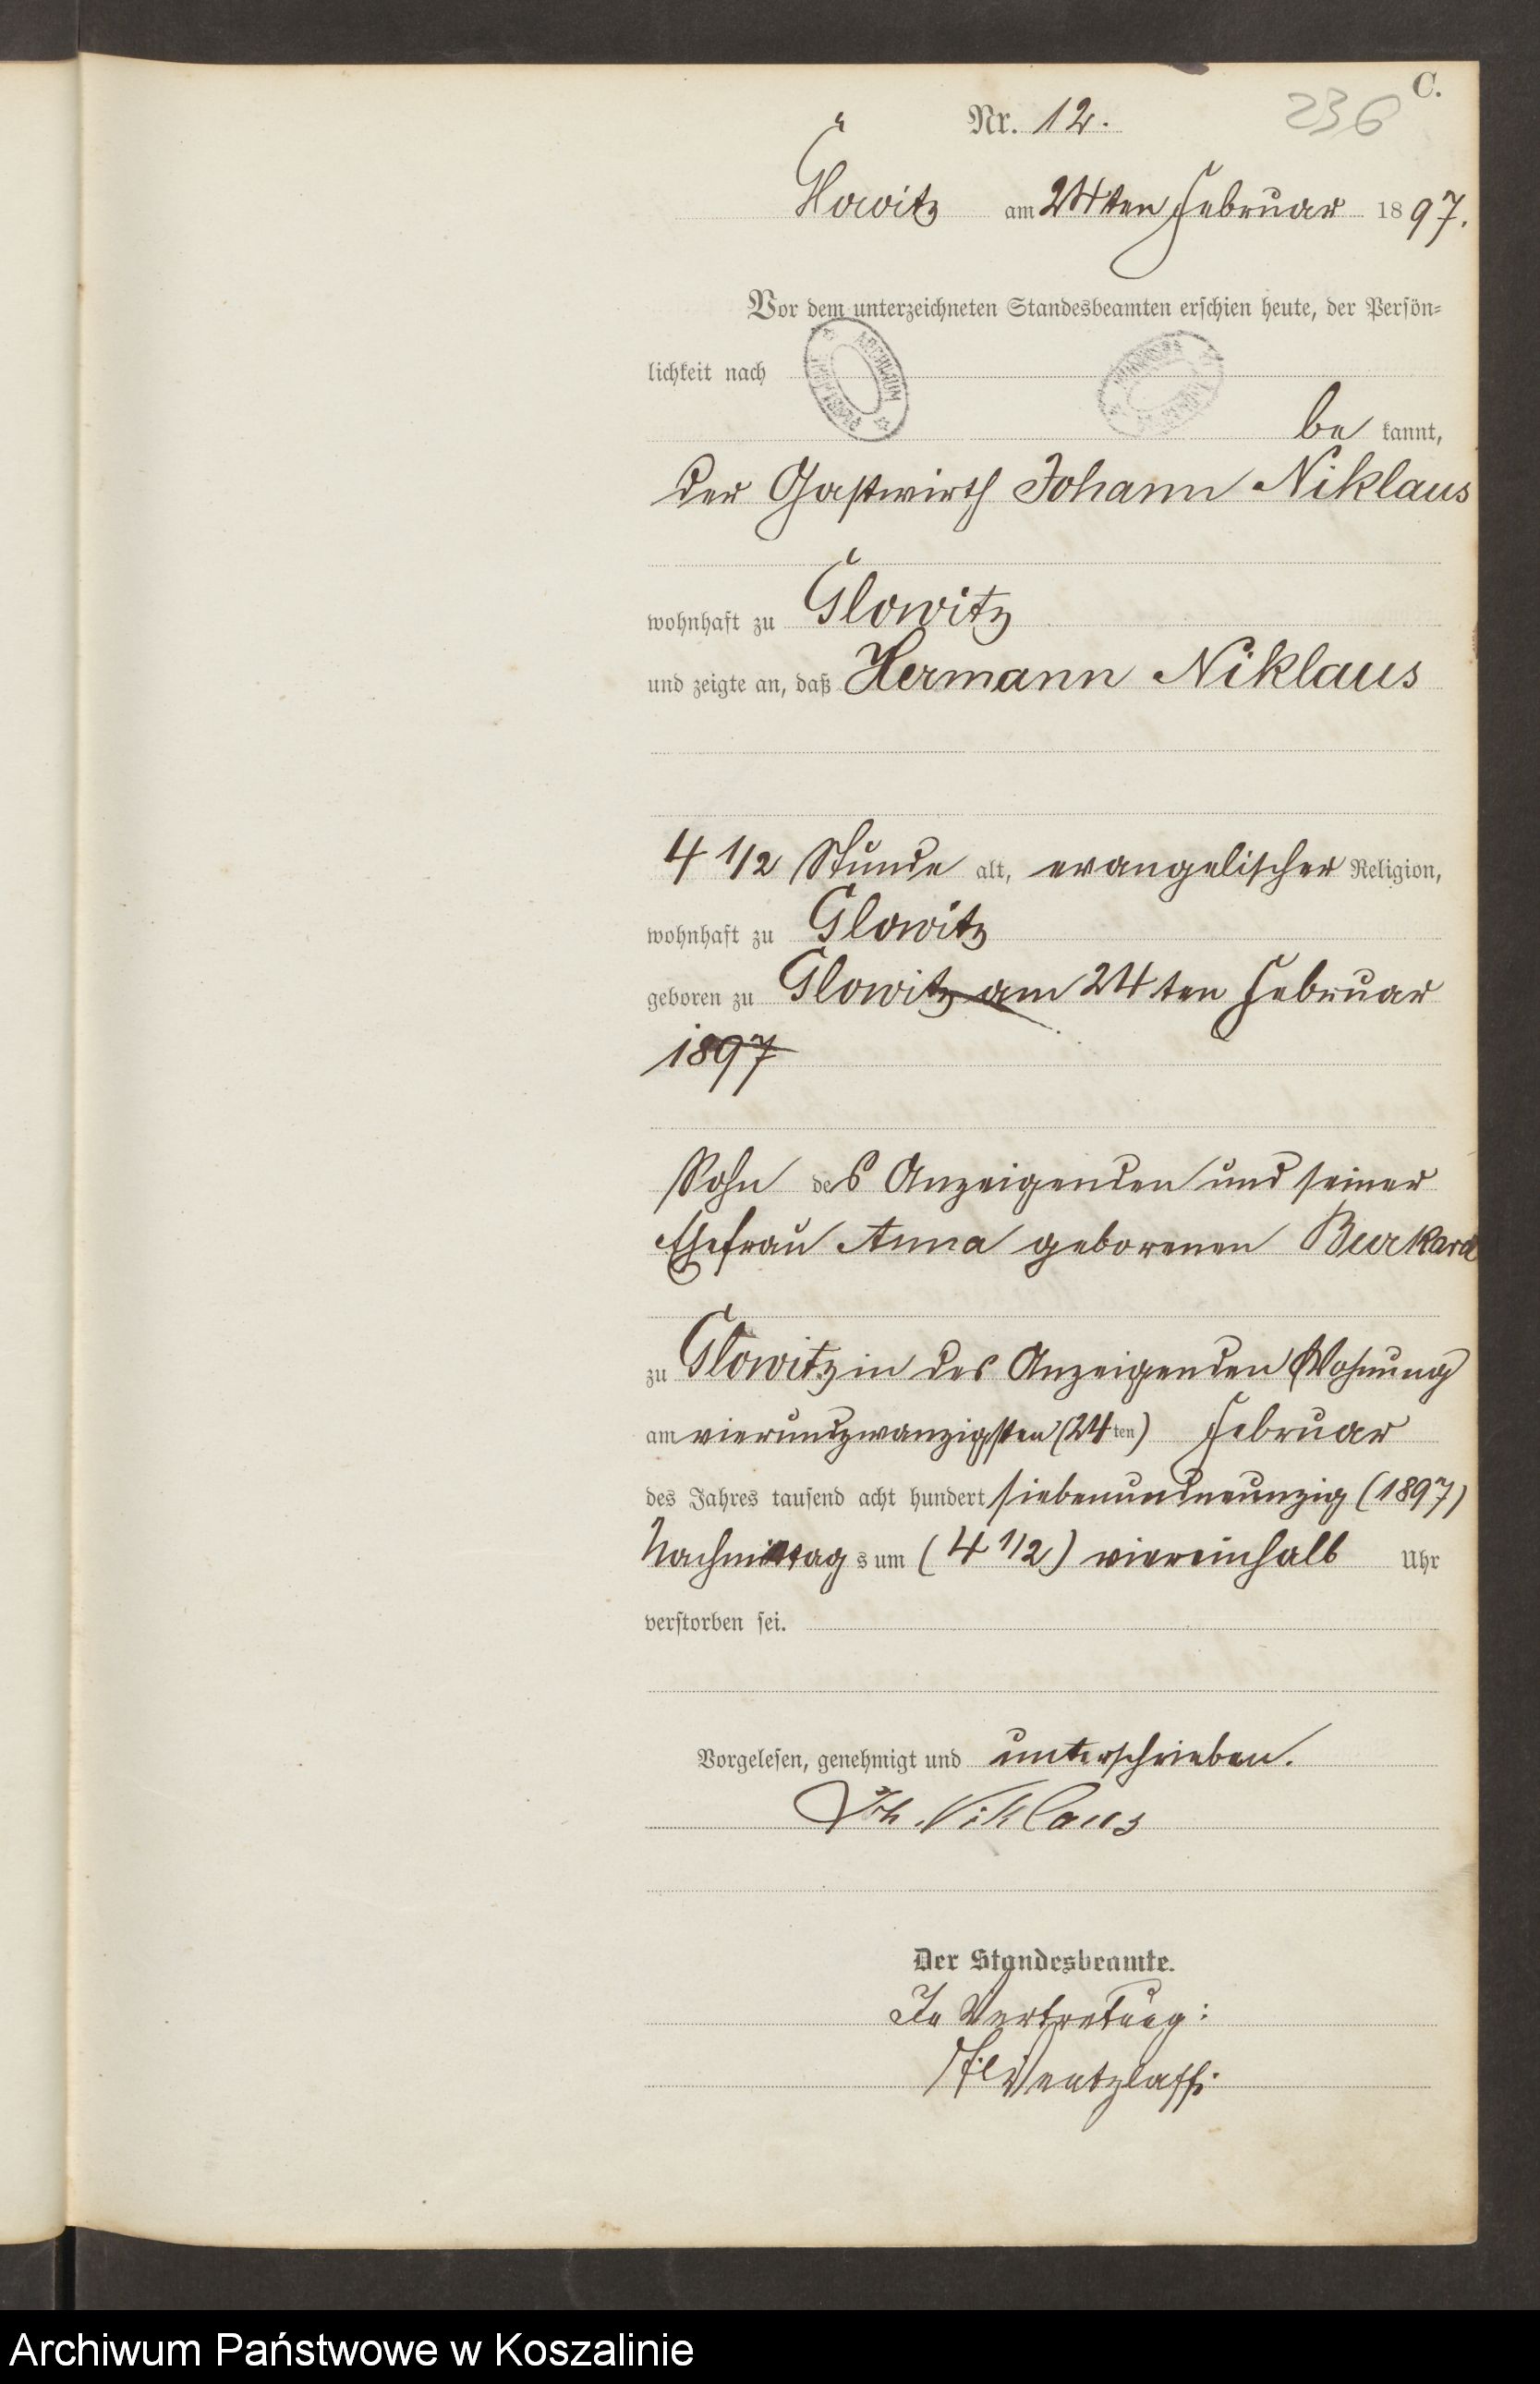 C.
236
Nr. 12.
Glowitz am 24ten Februar 1897.
Vor dem unterzeichneten Standesbeamten erschien heute, der Persön-
lichkeit nach
ARCHIWUM
be kannt,
der Gastwirth Johann Niklaus
wohnhaft zu Glowitz
und zeigte an, daß Hermann Niklaus
4 1/2 Stunde alt, evangelischer Religion,
wohnhaft zu Glowitz
geboren zu Glowitz am 24ten Februar
1897
Sohn des Anzeigenden und seiner
Ehefrau Anna geborenen Burkard
zu Glowitz in des Anzeigenden Wohnung
am vierundzwanzigsten (24ten) Februar
des Jahres tausend acht hundert siebenundneunzig (1897)
Nachmittags um (4 1/2) viereinhalb Uhr
verstorben sei.
Vorgelesen, genehmigt und unterschrieben.
Joh. Niklaus
Der Standesbeamte.
In Vertretung:
Wentzlaff.
Archiwum Państwowe w Koszalinie